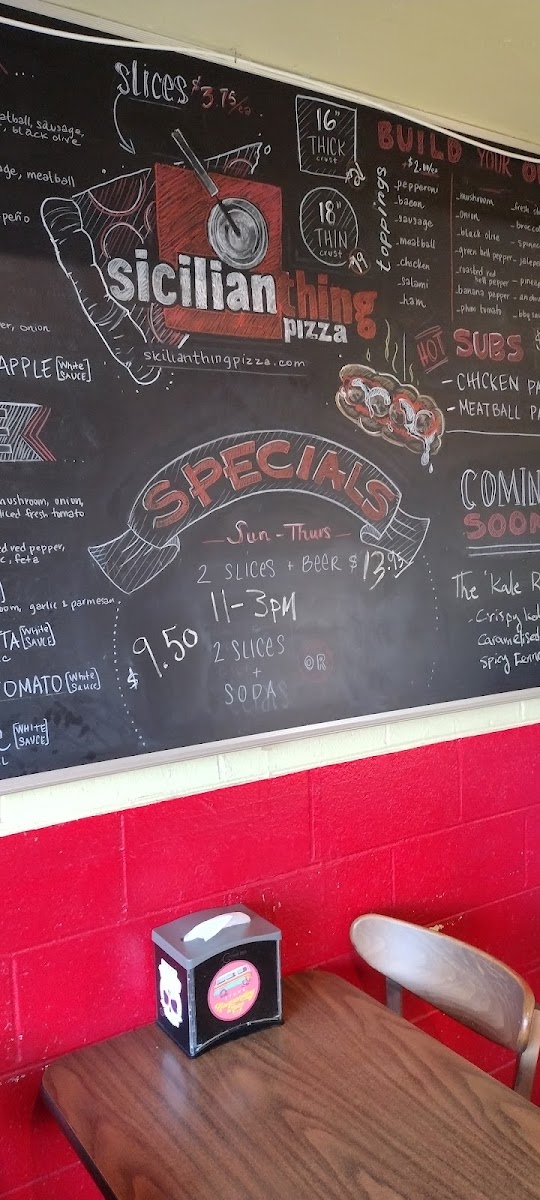 slices $3.75/ea
meatball, sausage,
black olive
sausage, meatball
onion
[White SAUCE]
mushroom, onion,
sliced fresh tomato
red pepper,
feta
garlic & parmesan
[White SAUCE]
TOMATO [White SAUCE]
[WHITE SAUCE]
sicilianthing
pizza
sicilianthingpizza.com
16"
THICK
crust
18"
THIN
crust
BUILD YOUR
+$2.00/ea
toppings
pepperoni
bacon
sausage
meatball
chicken
salami
ham
mushroom
onion
black olive
green bell pepper
roasted red
bell pepper
banana pepper
plum tomato
HOT SUBS
- CHICKEN
- MEATBALL
SPECIALS
Sun - Thurs
2 SLICES + BEER $13.95
11-3PM
$9.50
2 SLICES
+
SODA
OR
SOON
The 'Kale
- Crispy
Spicy